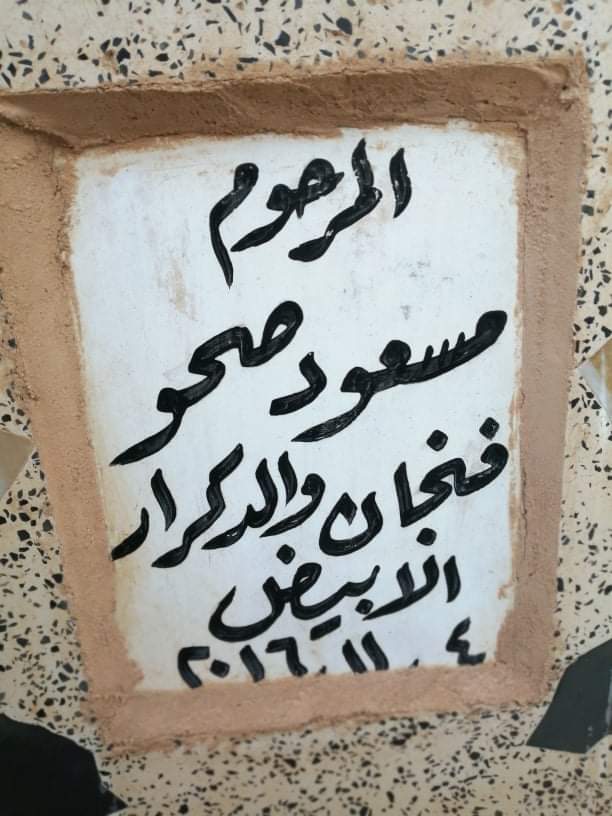 المرحوم
مسعود صحو
فنجان والد كرار
الابيض
٤ . ١١ . ٢٠١٦